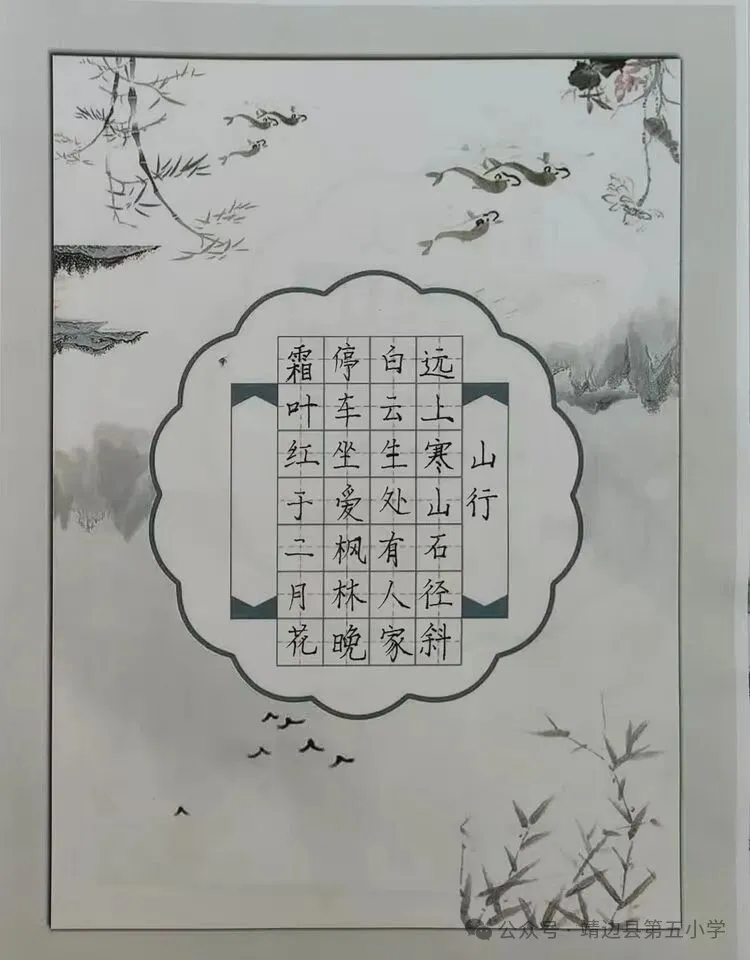 山行
远上寒山石径斜
白云生处有人家
停车坐爱枫林晚
霜叶红于二月花
公众号·靖边县第五小学